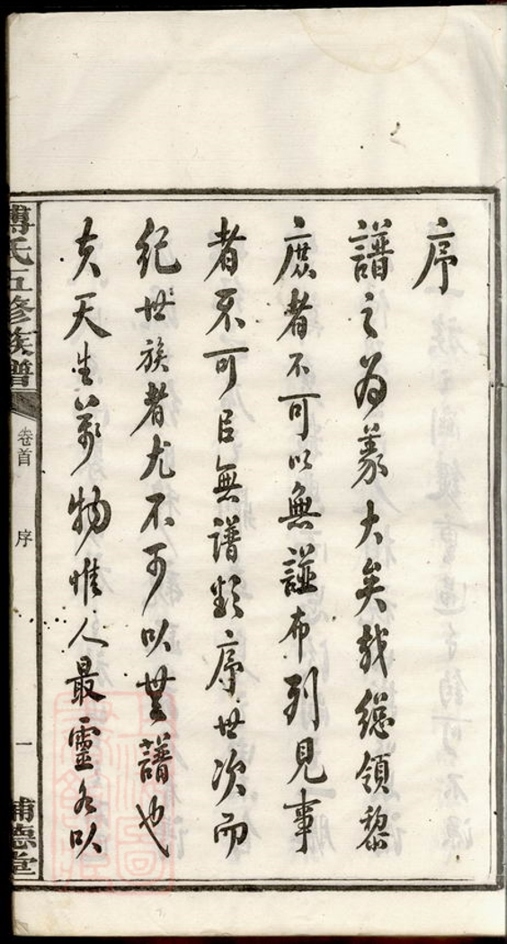 序
譜之為義大矣哉總領黎
庶者不可以無譜布列見事
者不可㠯無譜類序世次而
紀世族者尤不可以無譜也
夫天生萬物惟人最靈以
傅氏五修族譜
卷首
序
一
浦德堂